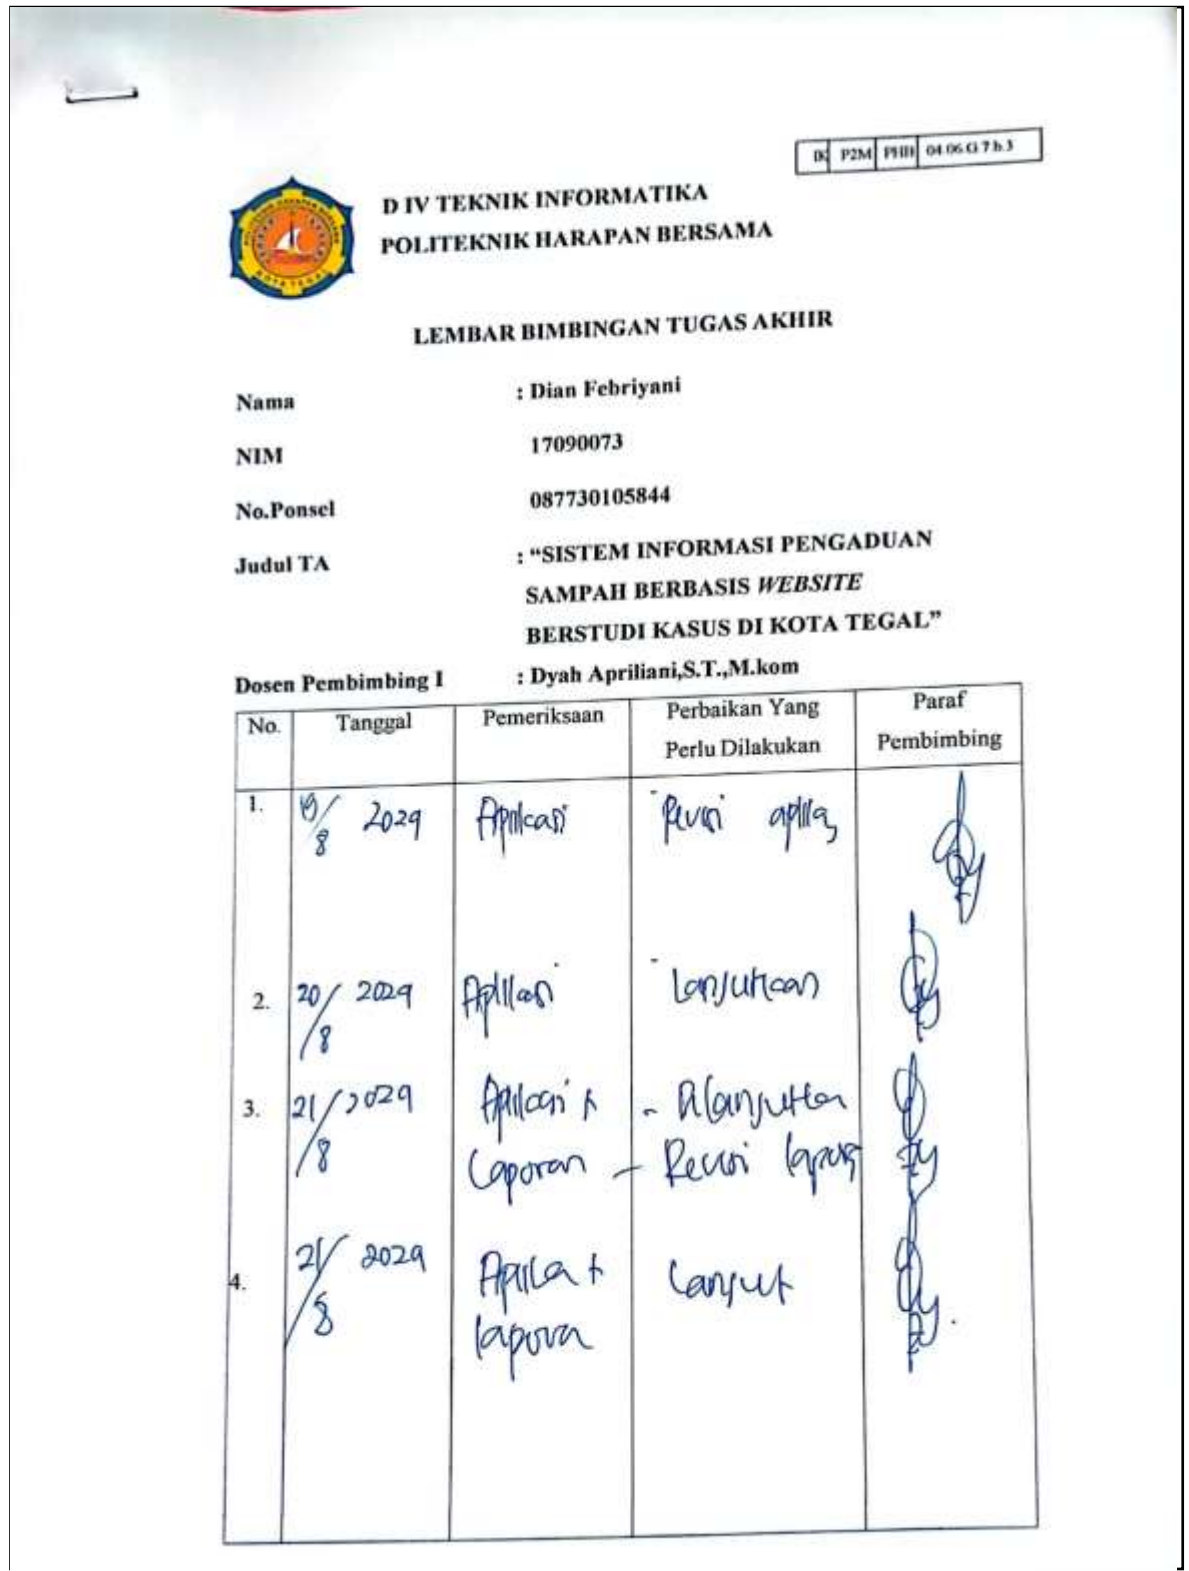 IK P2M PHB 04 06 G 7 b.3
D IV TEKNIK INFORMATIKA
POLITEKNIK HARAPAN BERSAMA
KOTA TEGAL
LEMBAR BIMBINGAN TUGAS AKHIR
Nama : Dian Febriyani
NIM 17090073
No.Ponsel 087730105844
Judul TA : “SISTEM INFORMASI PENGADUAN
SAMPAH BERBASIS WEBSITE
BERSTUDI KASUS DI KOTA TEGAL”
Dosen Pembimbing I : Dyah Apriliani,S.T.,M.kom
No. Tanggal Pemeriksaan Perbaikan Yang Perlu Dilakukan Paraf Pembimbing
1. 19/8 Aplikasi Revisi
2. 20/8 Aplikasi Lanjutkan
3. 21/8 Aplikasi +
Laporan - Revisi
4. 21/8 + Lanjut